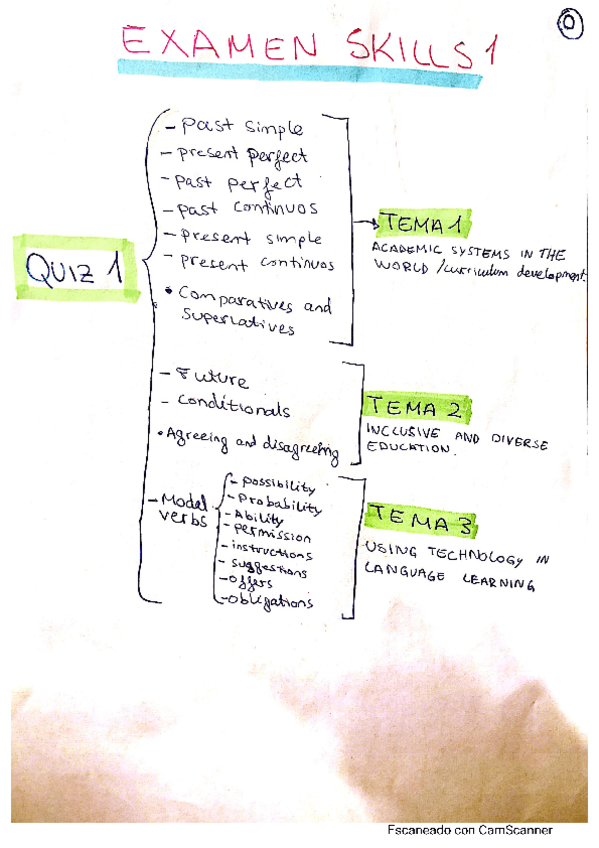 0
EXAMEN SKILLS 1
QUIZ 1
- past simple
- present perfect
- past perfect
- past continuos
- present simple
- present continuos
• Comparatives and
superlatives
TEMA 1
ACADEMIC SYSTEMS IN THE
WORLD /curriculum development.
- Future
- Conditionals
• Agreeing and disagreeing
TEMA 2
INCLUSIVE AND DIVERSE
EDUCATION.
- Modal
verbs
- possibility
- Probability
- Ability
- permission
- instructions
- suggestions
- offers
- obligations
TEMA 3
USING TECHNOLOGY IN
LANGUAGE LEARNING
Escaneado con CamScanner